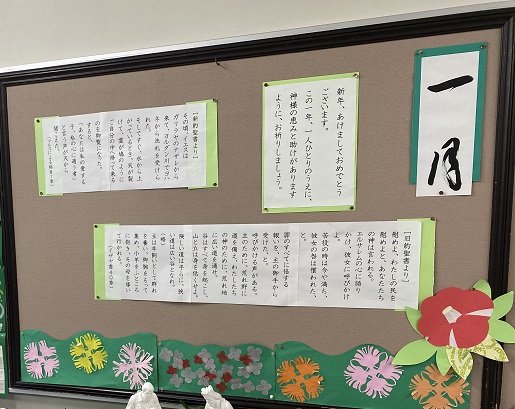 一月
新年、あけましておめでとう
ございます。
この一年、一人ひとりのうえに、
神様の恵みと助けがあります
ように、お祈りしましょう。
【新約聖書より】
その頃、イエスは
ガリラヤのナザレから
来て、ヨルダン川でヨハ
ネから洗礼を受けら
れた。
そしてすぐ、水から上
がっているとき、天が裂
けて、霊が鳩のように
ご自分の中へ降って来る
のを御覧になった。
すると、
「あなたは私の愛する
子、私の心に適う者」
と言う声が天から
聞こえた。
【旧約聖書より】
慰めよ、わたしの民を
慰めよと、あなたたち
の神は言われる。
エルサレムの心に語り
かけ、彼女に呼びかけ
よ。
苦役の時は今や満ち、
彼女の咎は償われた、
と。
罪のすべてに倍する
報いを、主の御手から
受けた、と。
呼びかける声がある。
主のために、荒れ野に
道を備え、わたしたち
の神のために、荒れ地
に広い道を通せ。
谷はすべて身を起こし、
山と丘は身を低くせよ。
険しい道は平らに、狭
い道は広い谷となれ。
主は羊飼いとして群れ
を養い、御腕をもって
集め、小羊をふところ
に抱き、その母を導い
て行かれる。